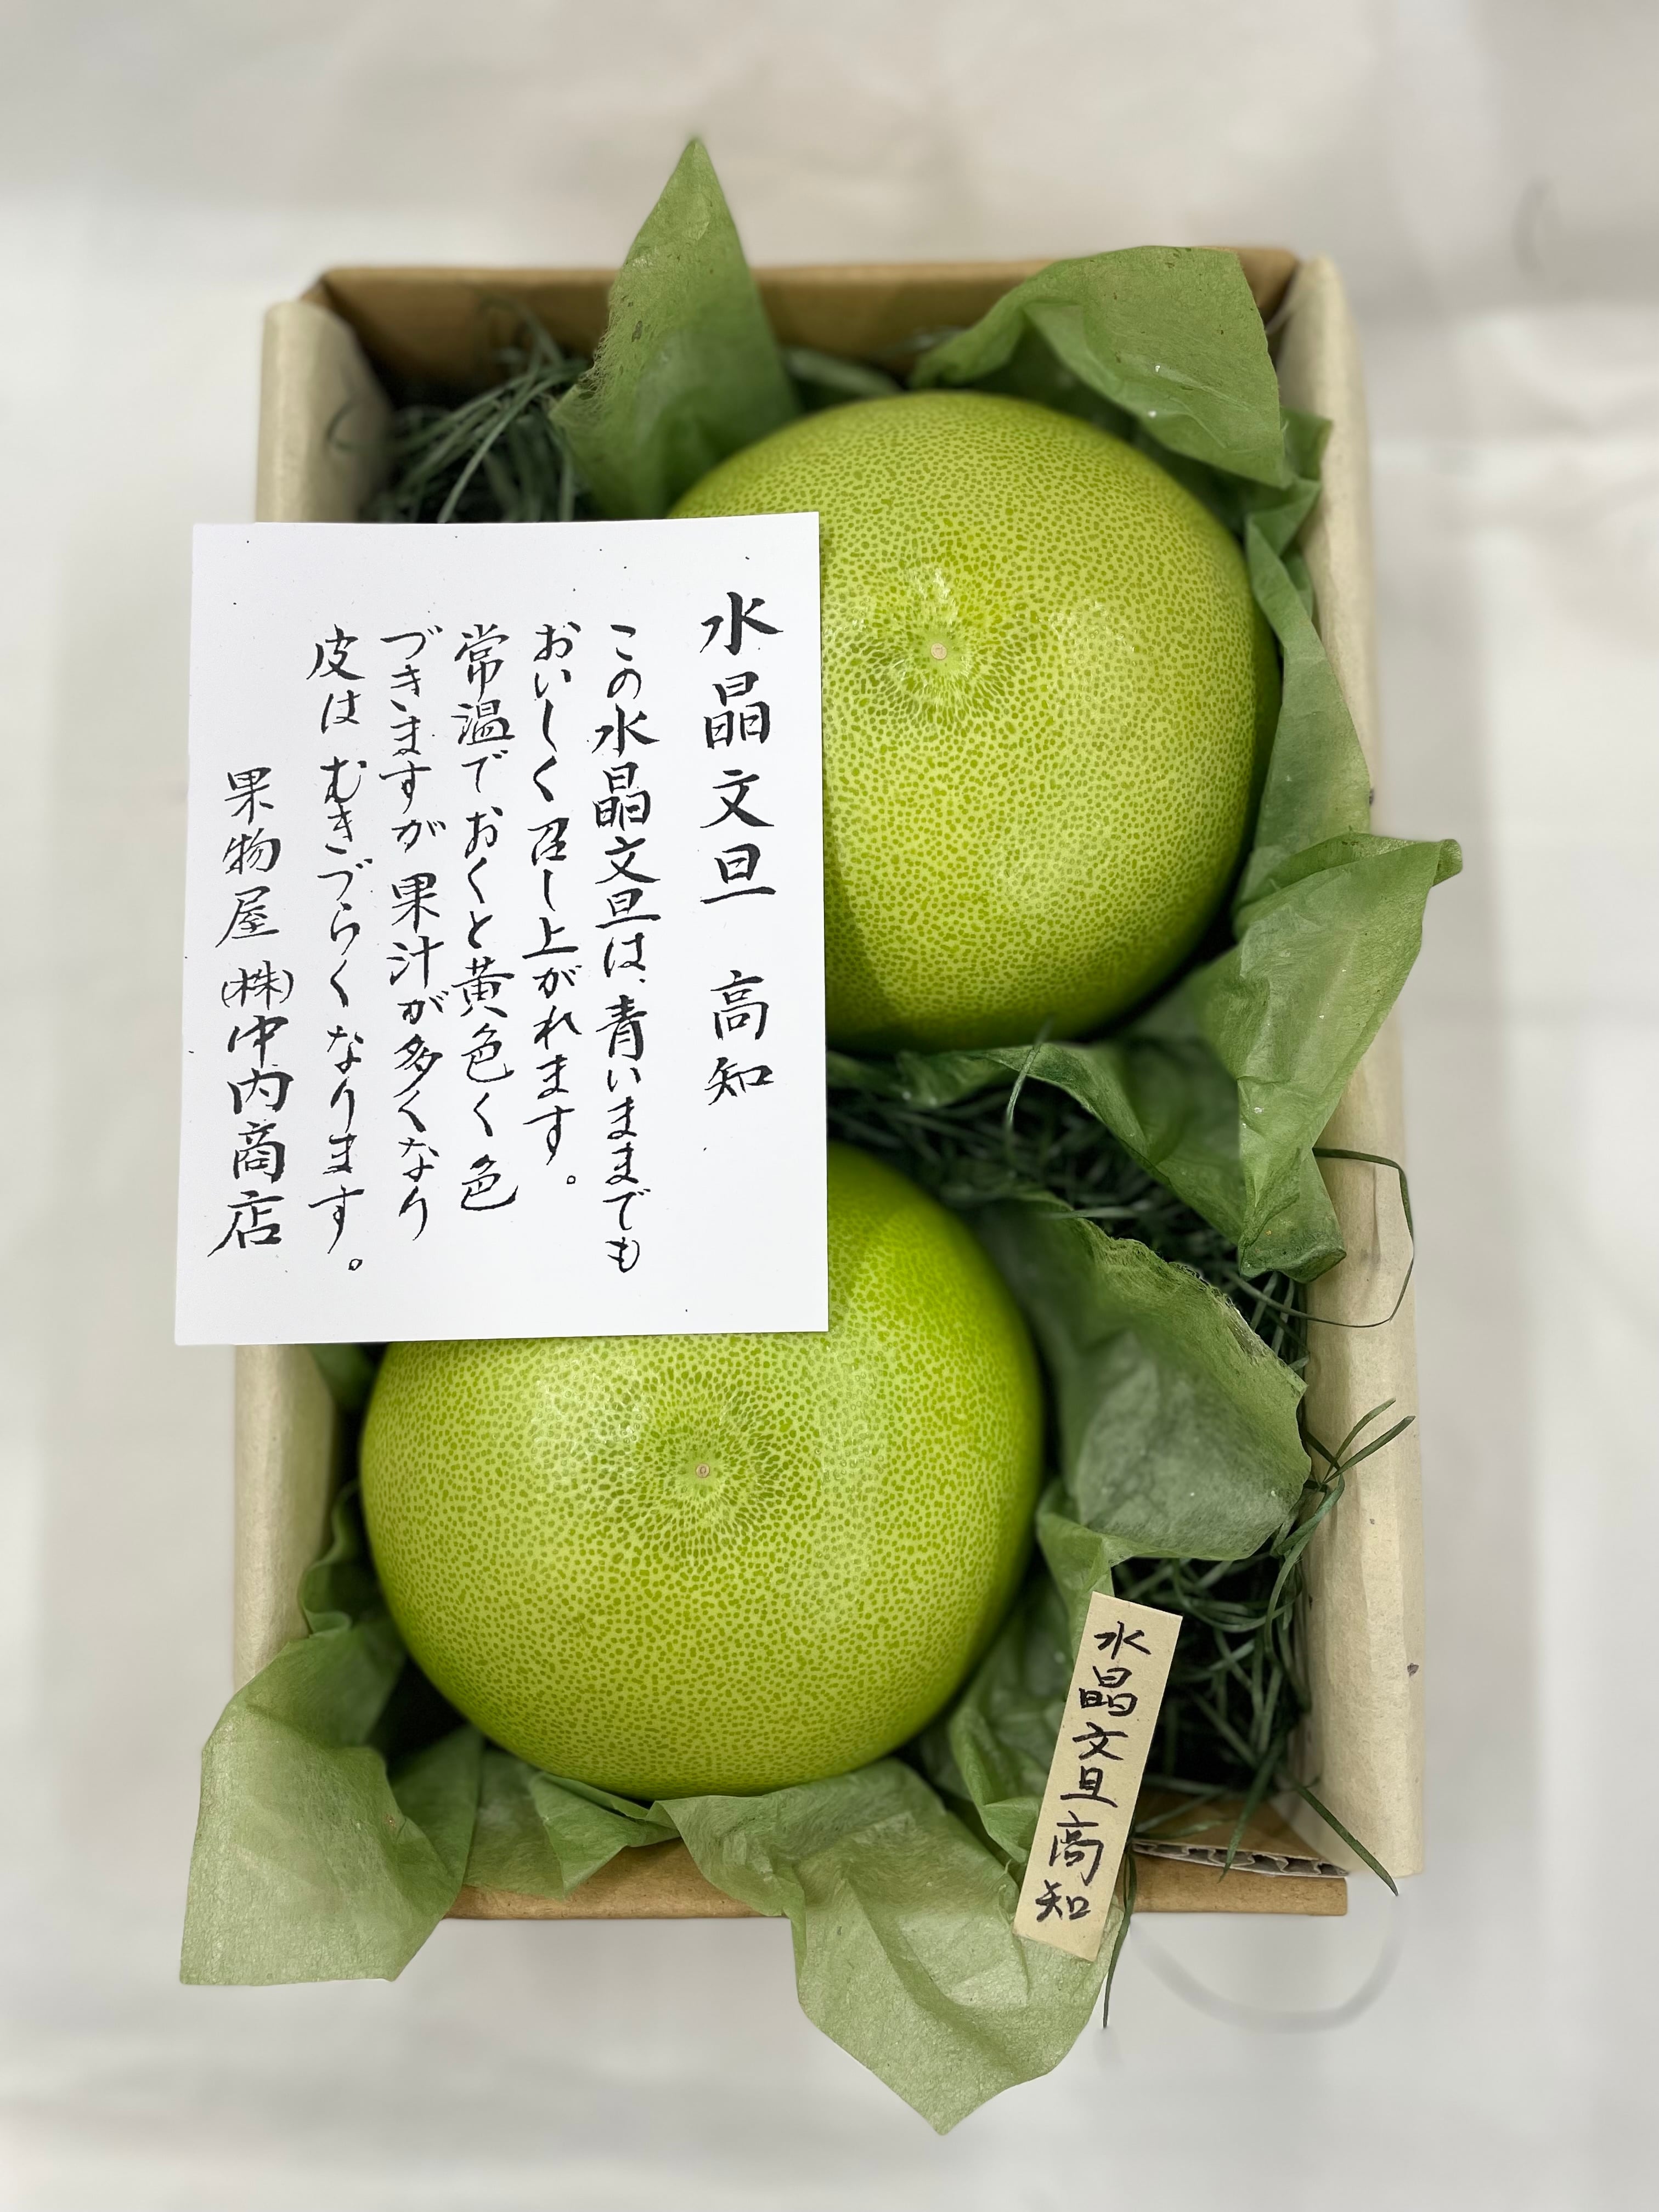 水晶文旦 高知
この水晶文旦は、青いままでも
おいしく召し上がれます。
常温でおくと黄色く色
づきますが果汁が多くなり
皮はむきづらくなります。
果物屋 ㈱中内商店
水晶文旦高知